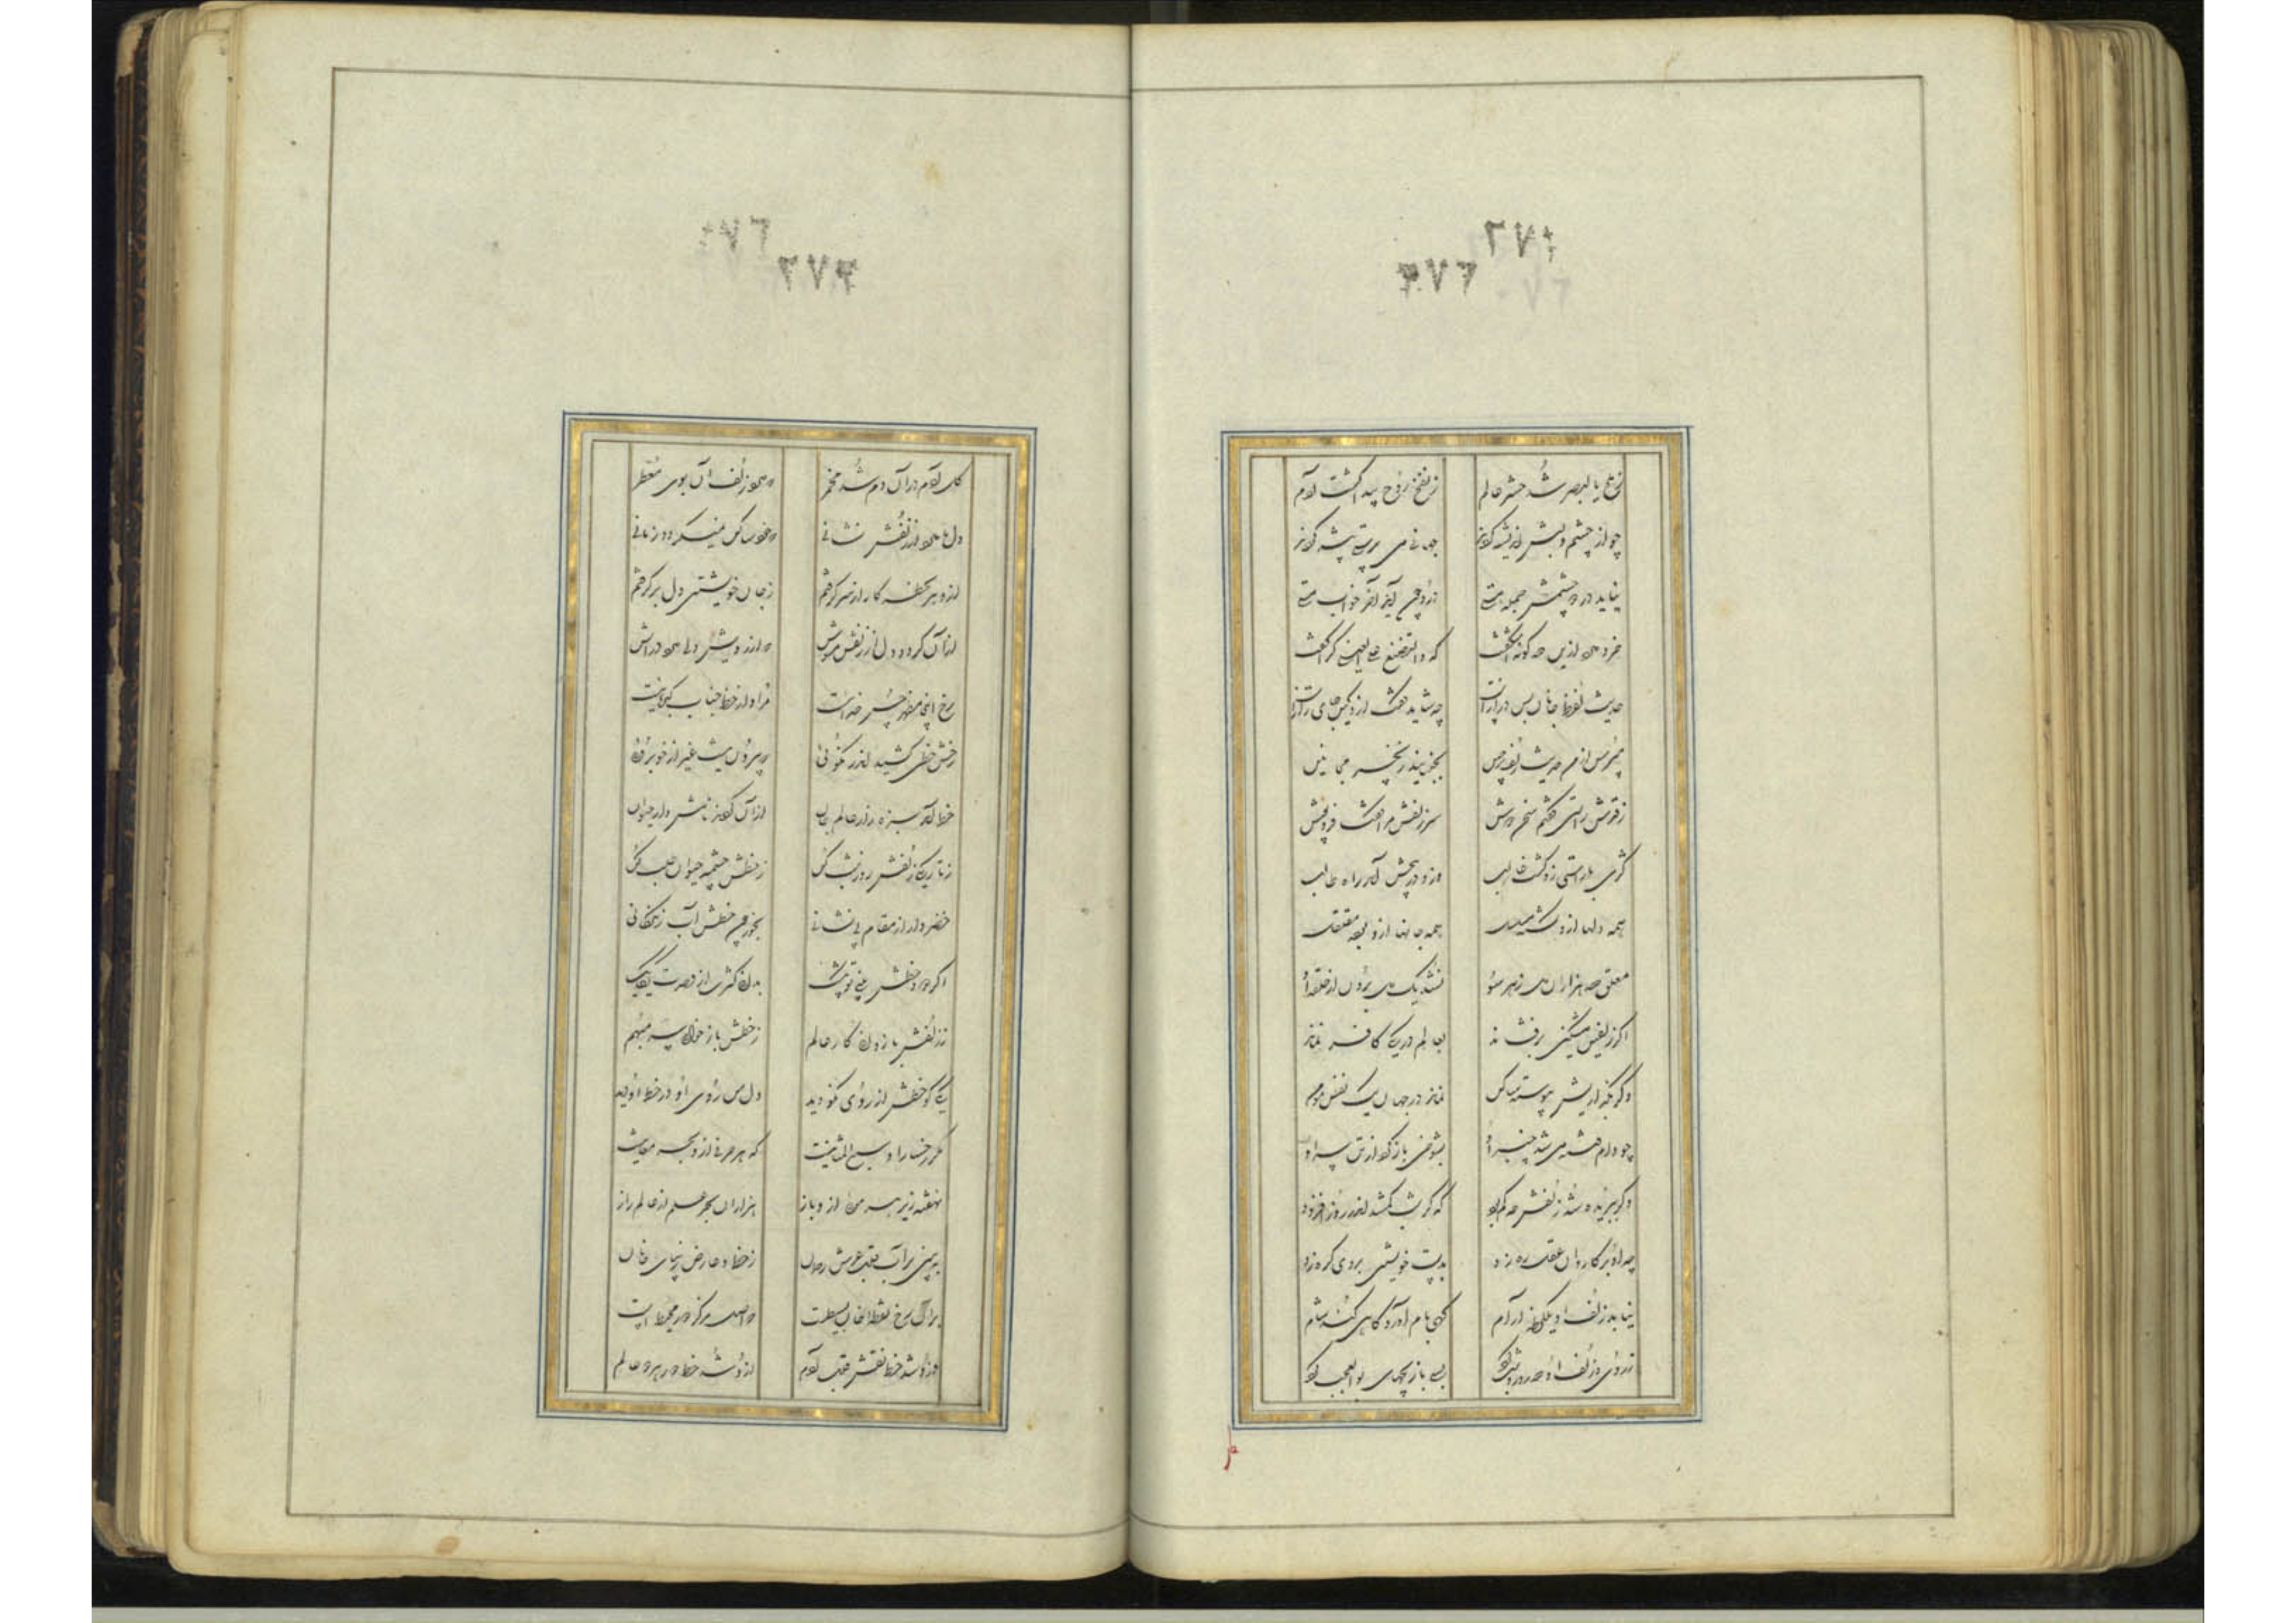 بالبصر شد حشر عالم ز نفخ روح پیدا گشت آدم
چو از چشم و لبش اندیشه کردند جهانی می پرستی پیشه کردند
نیاید در دو چشمش جمله هستی درو چون آید آخر خواب مستی
خرد دارد ازین صد گونه اشگفت که ولتصنع علی عینی گفت
حدیث زلف جانان بس درازست چه شاید گفت ازو کان جای رازست
مپرس از من حدیث زلف پرچین زنجیر مجانین
ز قدش راستی گفتم سخن دوش سر زلفش مرا گفتا فروپوش
کژی بر راستی زو گشت غالب وزو در پیچش آمد راه طالب
همه دلها ازو گشته مسلسل همه جانها ازو بوده مقلقل
معلق صد هزاران دل ز هر سو نشد یک دل برون از حلقه او
اگر زلفین مشکین برفشاند بعالم در یکی کافر نماند
وگر بگذاردش پیوسته ساکن نماند در جهان یک نفس مومن
چو دام فتنه می شد چنبر او بشوخی باز کرد از تن سر او
وگر ببریده شد زلفش چه کم بود که گر شب کم شد اندر روز افزود
چو او بر کاروان عقل ره زد بدست خویشتن بر وی گره زد
نیابد زلف او یکلحظه آرام گهی بام آورد گاهی کند شام
ز روی و زلف او صد روز و شب کرد بسی بازیچهای بوالعجب کرد
گل آدم در آن دم شد مخمر زلف آن بوی معطر
دل ما دارد از زلفش نشانی که خود ساکن نمیگردد زمانی
ازو هر لحظه کار از سر گرفتم ز جان خویشتن دل برگرفتم
از آن گردد دل از زلفش مشوش که از رویش دلی دارد در آتش
رخ اینجا مظهر حسن خدائست مراد از خط جناب کبریائیست
رخش خطی کشید اندر نکوئی که بیرون نیست غیر از خوبروئی
خط آمد سبزه زار عالم جان از آن کردند نامش دار حیوان
ز تاریکی زلفش روز شب کن ز خطش چشمه حیوان طلب کن
خضروار از مقام بی نشانی بخور چون خطش آب زندگانی
اگر روی و خطش بینی تو بیشک بدانی کثرت از وحدت یکایک
ز زلفش باز دانی کار عالم ز خطش باز خوانی سر مبهم
یکی گر خطش از روی نکو دید دل من روی او در خط او دید
مگر رخسار او سبع المثانیست که هر حرفی ازو بحر معانیست
نهفته زیر هر موئی ازو باز هزاران بحر علم از عالم راز
ببین بر آب قلب عرش رحمان ز خط و عارض زیبای جانان
بر آن رخ نقطه خالش بسیطست که اصل مرکز و دور محیط است
ازو شد خط نفس قلب آدم ازو شد خط دور هر دو عالم